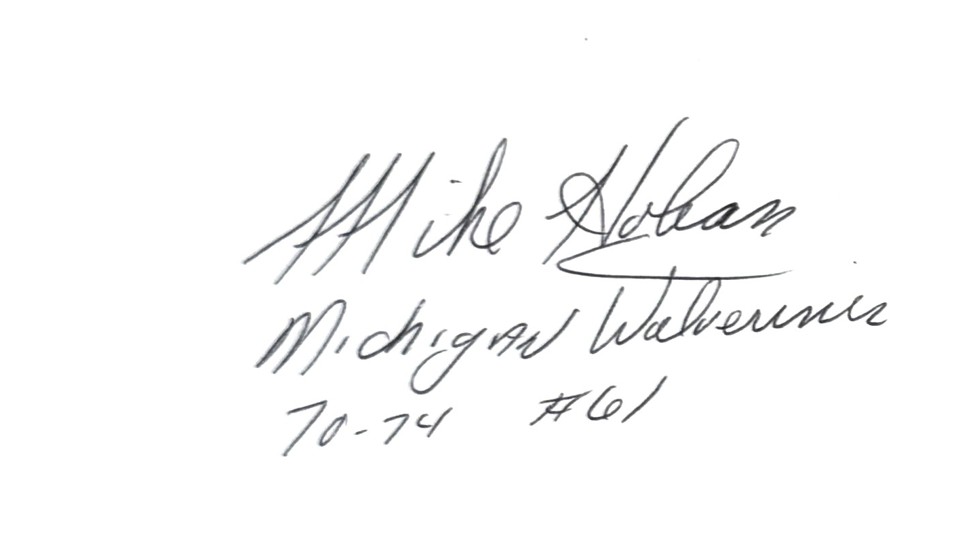 Mike Hoban
Michigan Wolverines
70-74 #61